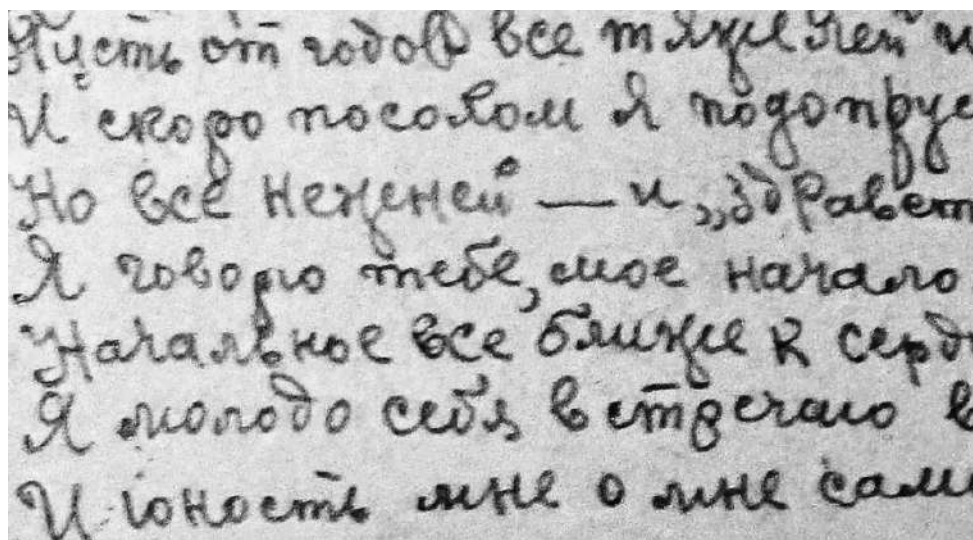 Пусть от годов все тяжелей и
И скоро посохом я подопрус
Но все нежней — и „здравст
Я говорю тебе, мое начало
Начальное все ближе к серд
Я молодо себя встречаю в
И юность мне о мне сами